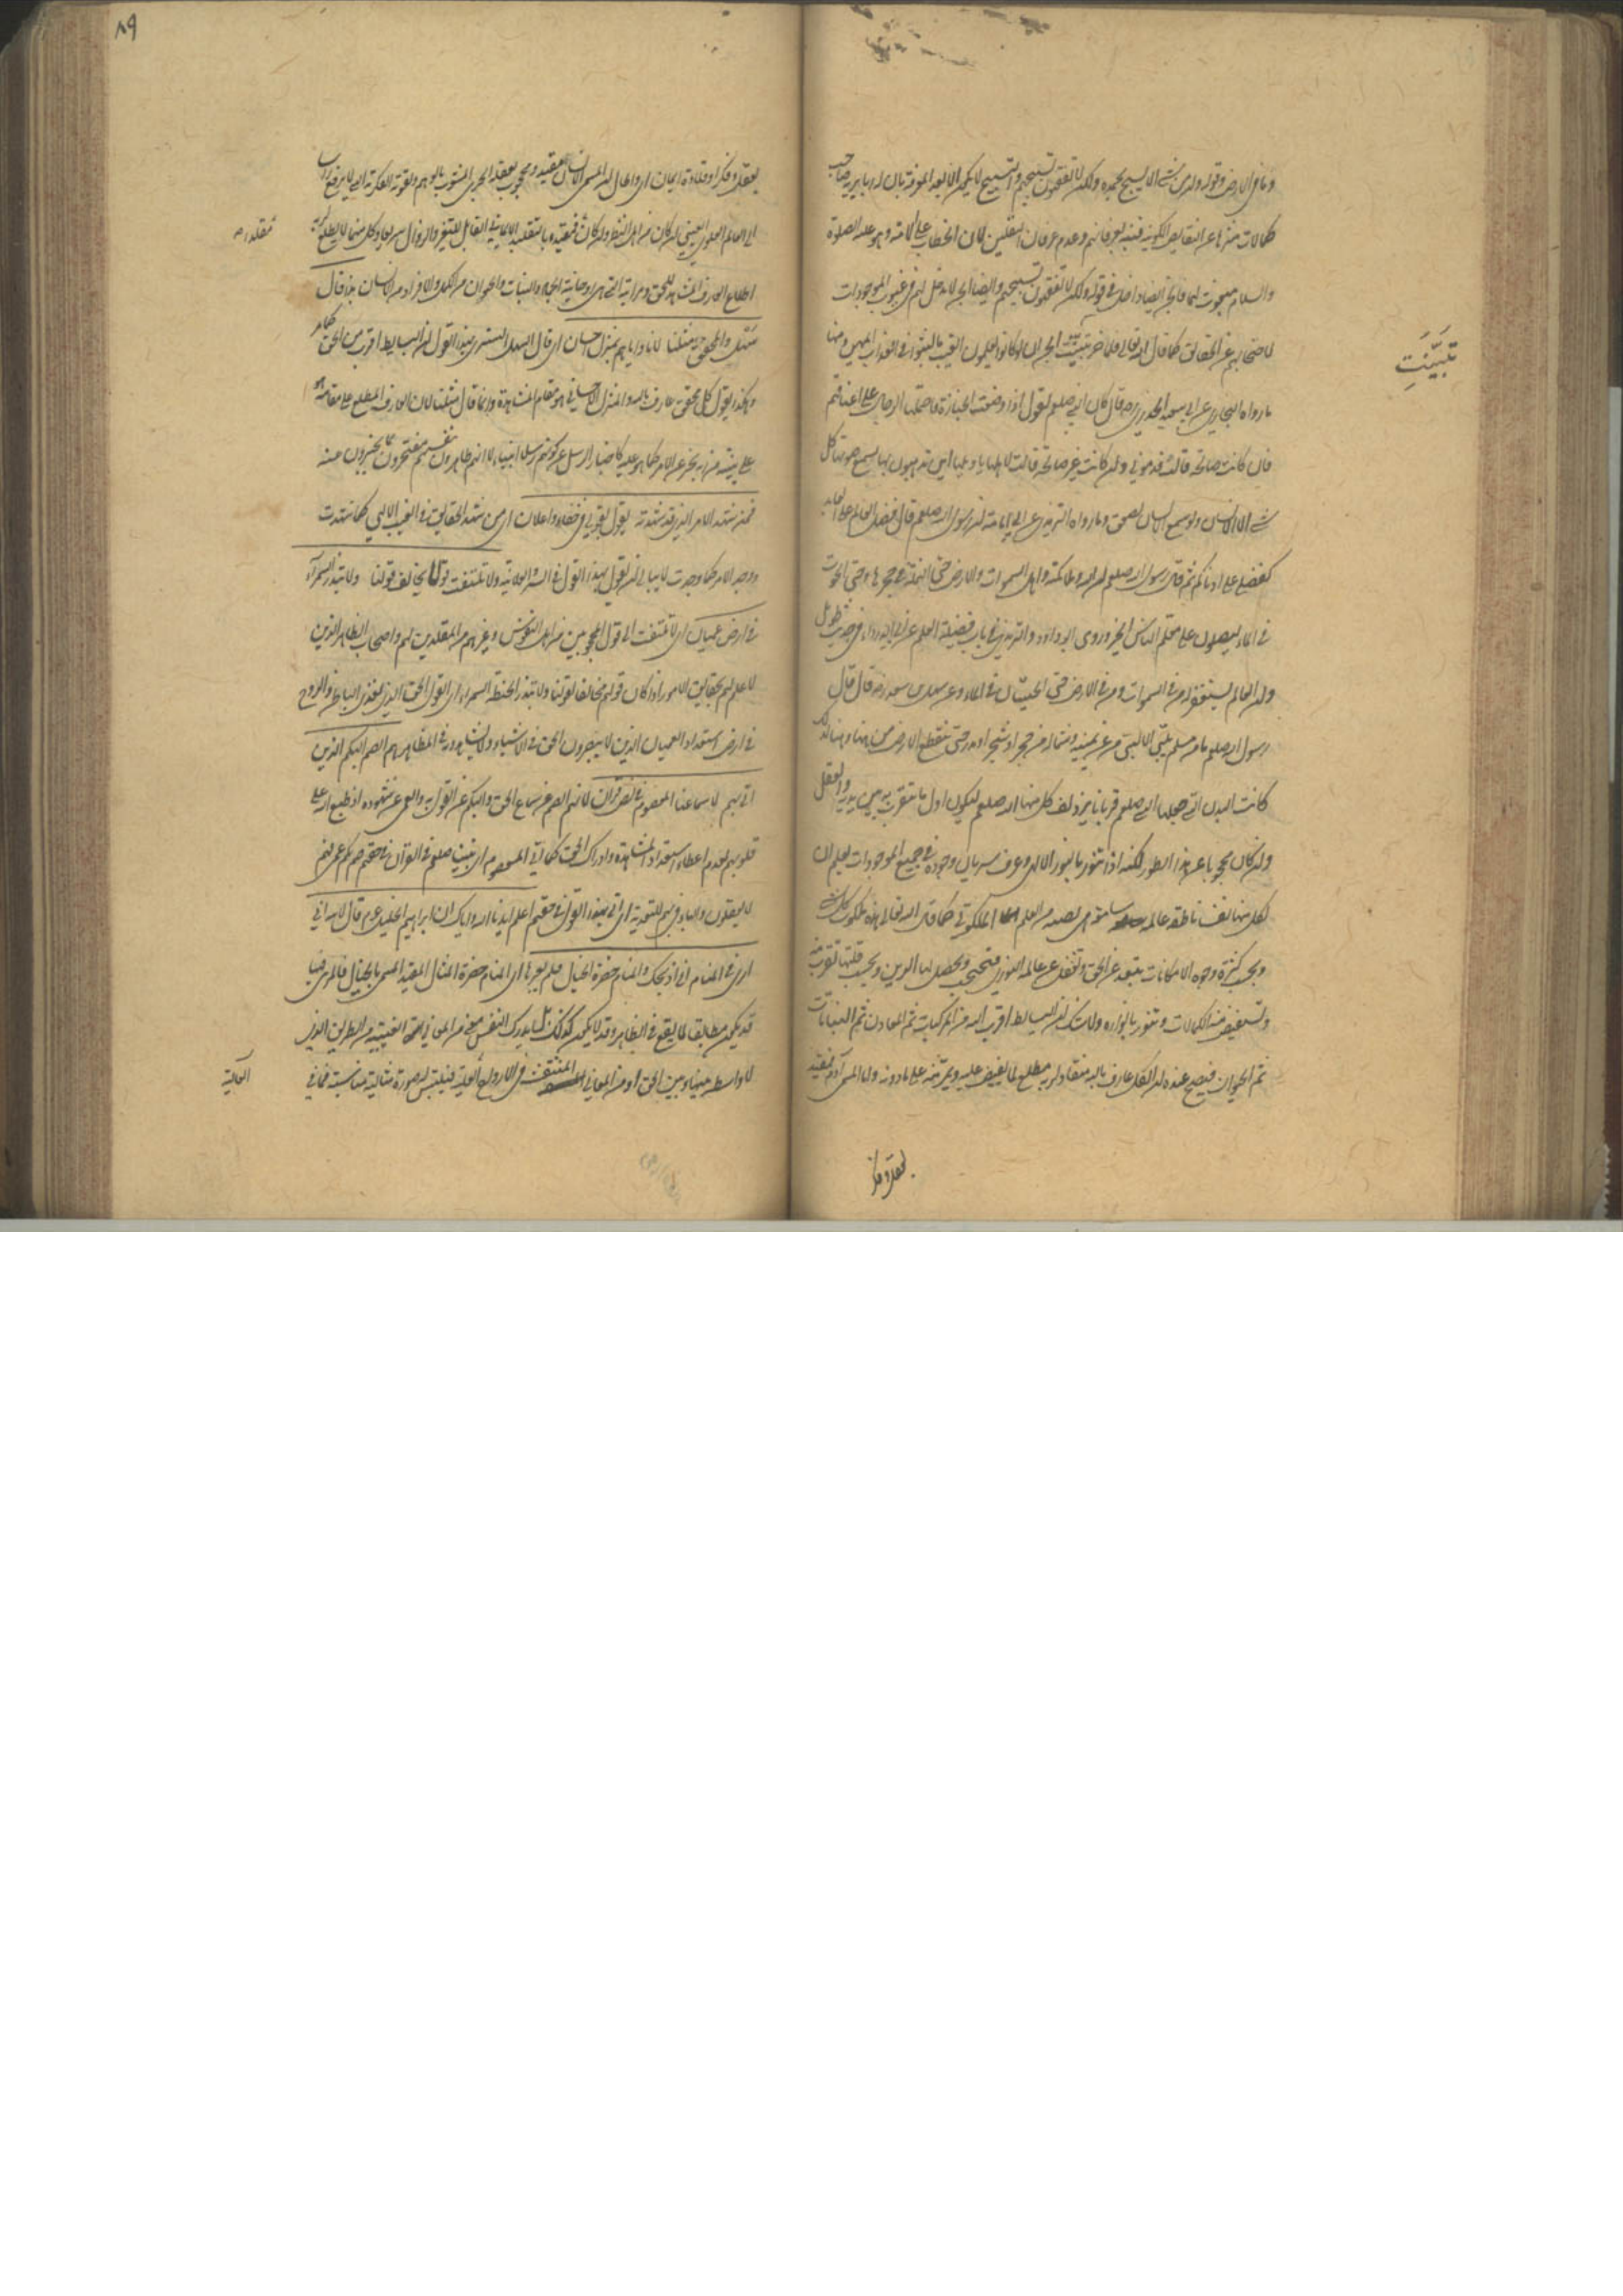 وما في الارض وقوله وان من شئ الا يسبح بحمده ولكن لا تفقهون تسبيحهم والتسبيح لا يكون الا بعد المعرفة بان له ربا يربه صاحب
كمالات منزها عن النقايص الكونية فنبه بعرفانهم وعدم عرفان الثقلين لان الخطاب على لامته وهو عليه الصلوة
والسلام مبعوث اليهما فالجن ايضا داخل في قوله ولكن لا تفقهون تسبيحهم وايضا الجن لا مدخل لهم في غيوب الموجودات
لاحتجابهم عن الحقايق كما قال الله تعالى فلما خر تبينت الجن ان لو كانوا يعلمون الغيب ما لبثوا في العذاب المهين ومنها
ما رواه البخاري عن ابي سعيد الخدري رضه قال كان النبي صلعم يقول اذا وضعت الجنازة فاحتملها الرجال على اعناقهم
فان كانت صالحة قالت قدموني وان كانت غير صالحة قالت لاهلها يا ويلها اين تذهبون بها يسمع صوتها كل
شئ الا الانسان ولو سمع الانسان لصعق وما رواه الترمذي عن ابي امامة ان رسول الله صلعم قال فضل العالم على العابد
كفضلي على ادناكم ثم قال رسول الله صلعم ان الله وملائكته واهل السموات والارض حتى النملة في جحرها وحتى الحوت
في الماء ليصلون على معلم الناس الخير وروى ابو داود والترمذي في باب فضيلة العلم عن ابي الدرداء في حديث طويل
وان العالم ليستغفر له من في السموات ومن في الارض حتى الحيتان في الماء وعن سهل بن سعد رضه قال قال
رسول الله صلعم ما من مسلم يلبي الا لبى من عن يمينه وشماله من حجر او شجر او مدر حتى تنقطع الارض من ههنا وههنا لذلك
كانت البدن التي جعلها النبي صلعم قربانا يزدلف كل منها اليه صلعم ليكون اول ما يتقرب به بين يديه والعقل
وان كان محجوبا عن هذا الطور لكنه اذا تنور بالنور الالهي وعرف سريان وجوده في جميع الموجودات يعلم ان
لكل منها نفسا ناطقة عالمة سامعة هي نصيبه من العالم الملكوتي كما قال الله تعالى بيده ملكوت كل شئ
وبحسب كثرة وجوه الامكانات يتبعد عن الحق وتغفل عن عالمه النوري فتحتجب ويحصل لها الرين وبحسب قلتها تقرب منه
وتستفيض منه الكمالات وتتنور بانواره ولا شك ان البسايط اقرب اليه من المركبات ثم المعادن ثم النباتات
ثم الحيوان فيصح عنده ان الكل عارف بالله منقاد لربه مطلع لما يفيض عليه ويمر منه على ما دونه واما المسمى آدم فمقيد
بعقل وفكر
تَبَيَّنَتِ
٨٩
بعقل وفكر او قلادة ايمان اي والحال ان المسمى بالانسان مقيد ومحجوب بعقله الجزئي المشوب بالوهم وبقوته الفكرية التي لا يرفع راسا
الى العالم العلوي الغيبي ان كان من اهل النظر وان كان فمقيده بالتقليد الايماني القابل للتغير والزوال سريعا وكل منهما لا يطلع
مقلدا صح
اطلاع العارف المشاهد للحق ومراتبه التي هي روحانية الجماد والنبات والحيوان من الكمل والافراد من الانسان بذا قال
سهل والمحقق مثلنا لانا واياهم بمنزل احسان اي قال السهل التستري بهذا القول ان البسايط اقرب من الحق
وهكذا يقول كل محقق عارف بالله والمنزل الاحساني هو مقام المشاهدة وانما قال مثلنا لان العارف المطلع على مقامه هو
على بينة من ربه يخبر عن الامر كما هو عليه كاخبار الرسل عن كونهم رسلا انبياء لا انهم ظاهرون بنفسهم مفتخرون بما يخبرون عنه
فمن شهد الامر الذي قد شهدته يقول بقولي في خفاء واعلان اي من شهد الحقايق في الغيب الالهي كما شهدت
ووجد الامر كما وجدت لا يبالي ان يقول بهذا القول في السر والعلانية ولا تلتفت قولا يخالف قولنا ولا تبذر السمراء
في ارض عميان اي لا تلتفت الى قول المحجوبين من اهل النقوش وغيرهم من المقلدين لهم واصحاب الظاهر الذين
لا علم لهم بحقايق الامور اذا كان قولهم مخالفا لقولنا ولا تبذر الحنطة السمراء اي القول الحق الذي يغذي الباطن والروح
في ارض استعداد العميان الذين لا يبصرون الحق في الاشياء ولا يشاهدونه في المظاهر هم الصم البكم الذين
اتى بهم لاسماعنا المعصوم في نص قرآن لانهم الصم عن سماع الحق والبكم عن القول به والعمي عن شهوده اذ طبع الله على
قلوبهم بعدم اعطاء استعداد المشاهدة وادراك الحق كما اتى المعصوم اي نبينا صلعم في القرآن في حقهم صم بكم عمي فهم
لا يعقلون والباء في بهم للتعدية اي اتى بهذا القول في حقهم اعلم ايدنا الله واياك ان ابراهيم الخليل عم قال لابنه اني
ارى في المنام اني اذبحك والمنام حضرة الخيال فلم يعبرها اي المنام حضرة المثال المقيد المسمى بالخيال فالمرئي فيها
قد يكون مطابقا لما يقع في الظاهر وقد لا يكون كذلك بل يدرك النفس معنى من المعاني الغيبية من الطريق الذي
لا واسطة بينها وبين الحق او من المعاني المنتقشة في الارواح العالية فيلبس له صورة مثالية مناسبة فما في
العالية